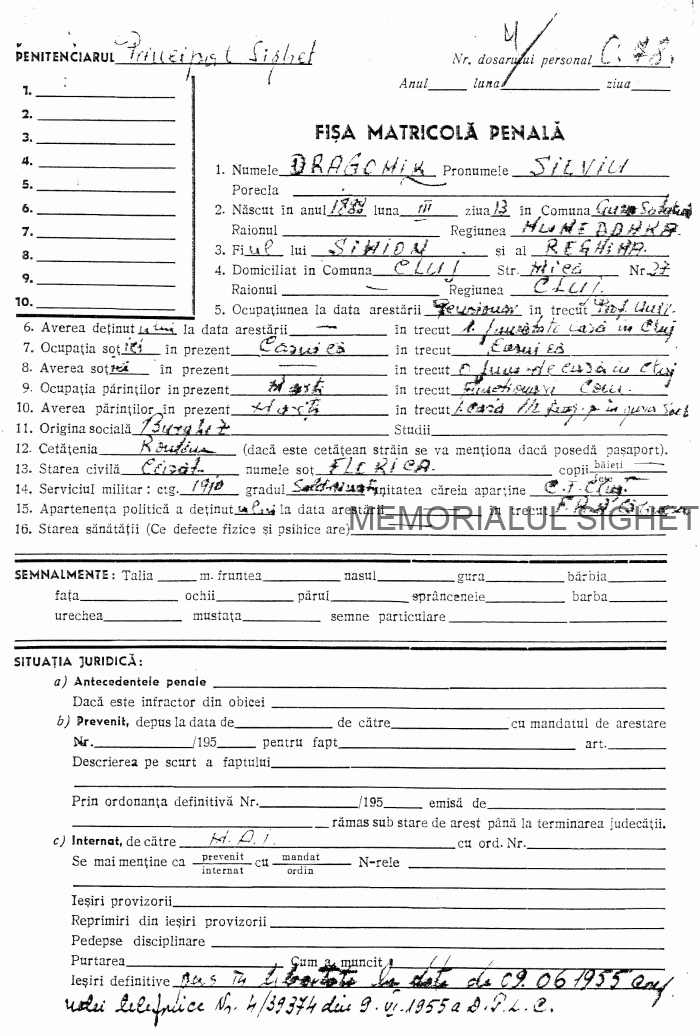 PENITENCIARUL Principal Sighet
Nr. dosarului personal C. 78.
Anul luna ziua
1.
2.
3.
4.
5.
6.
7.
8.
9.
10.
FIȘA MATRICOLĂ PENALĂ
1. Numele DRAGOMIR Pronumele SILVIU
Porecla
2. Născut în anul 1888 luna III ziua 13 în Comuna Gura
Raionul Regiunea HUNEDOARA
3. Fiul lui SIMION și al REGHINA
4. Domiciliat în Comuna CLUJ Str. Mica Nr. 27
Raionul — Regiunea CLUJ.
5. Ocupațiunea la data arestării Pensionar în trecut Prof. Univ.
6. Averea deținutului la data arestării — în trecut casă în Cluj
7. Ocupația soției în prezent Casnică în trecut Casnică
8. Averea soției în prezent — în trecut de casă in Cluj
9. Ocupația părinților în prezent Morți în trecut Functionari Com.
10. Averea părinților în prezent Morți în trecut 1 casă
11. Origina socială Burghez Studii
12. Cetățenia Română (dacă este cetățean străin se va menționa dacă posedă pașaport).
13. Starea civilă Căsăt. numele soț. FLORICA copii băieți —
fete
14. Serviciul militar: ctg. 1910 gradul Soldat unitatea căreia aparține C.T. Cluj
15. Apartenența politică a deținutului la data arestării — în trecut
MEMORIALUL SIGHET
16. Starea sănătății (Ce defecte fizice și psihice are)
SEMNALMENTE: Talia m. fruntea nasul gura bărbia
fața ochii părul sprâncenele barba
urechea mustața semne particulare
SITUAȚIA JURIDICĂ:
a) Antecedentele penale
Dacă este infractor din obicei
b) Prevenit, depus la data de de către cu mandatul de arestare
Nr. /195 pentru fapt art.
Descrierea pe scurt a faptului
Prin ordonanța definitivă Nr. /195 emisă de
rămas sub stare de arest până la terminarea judecății.
c) Internat, de către M.A.I. cu ord. Nr.
Se mai menține ca prevenit cu mandat N-rele
internat ordin
Ieșiri provizorii
Reprimiri din ieșiri provizorii
Pedepse disciplinare
Purtarea Cum a muncit
Ieșiri definitive pus în libertate la data de 09.06 1955 conf.
notei telefonice Nr. 4/39374 din 9.VI.1955 a D.F.L.C.